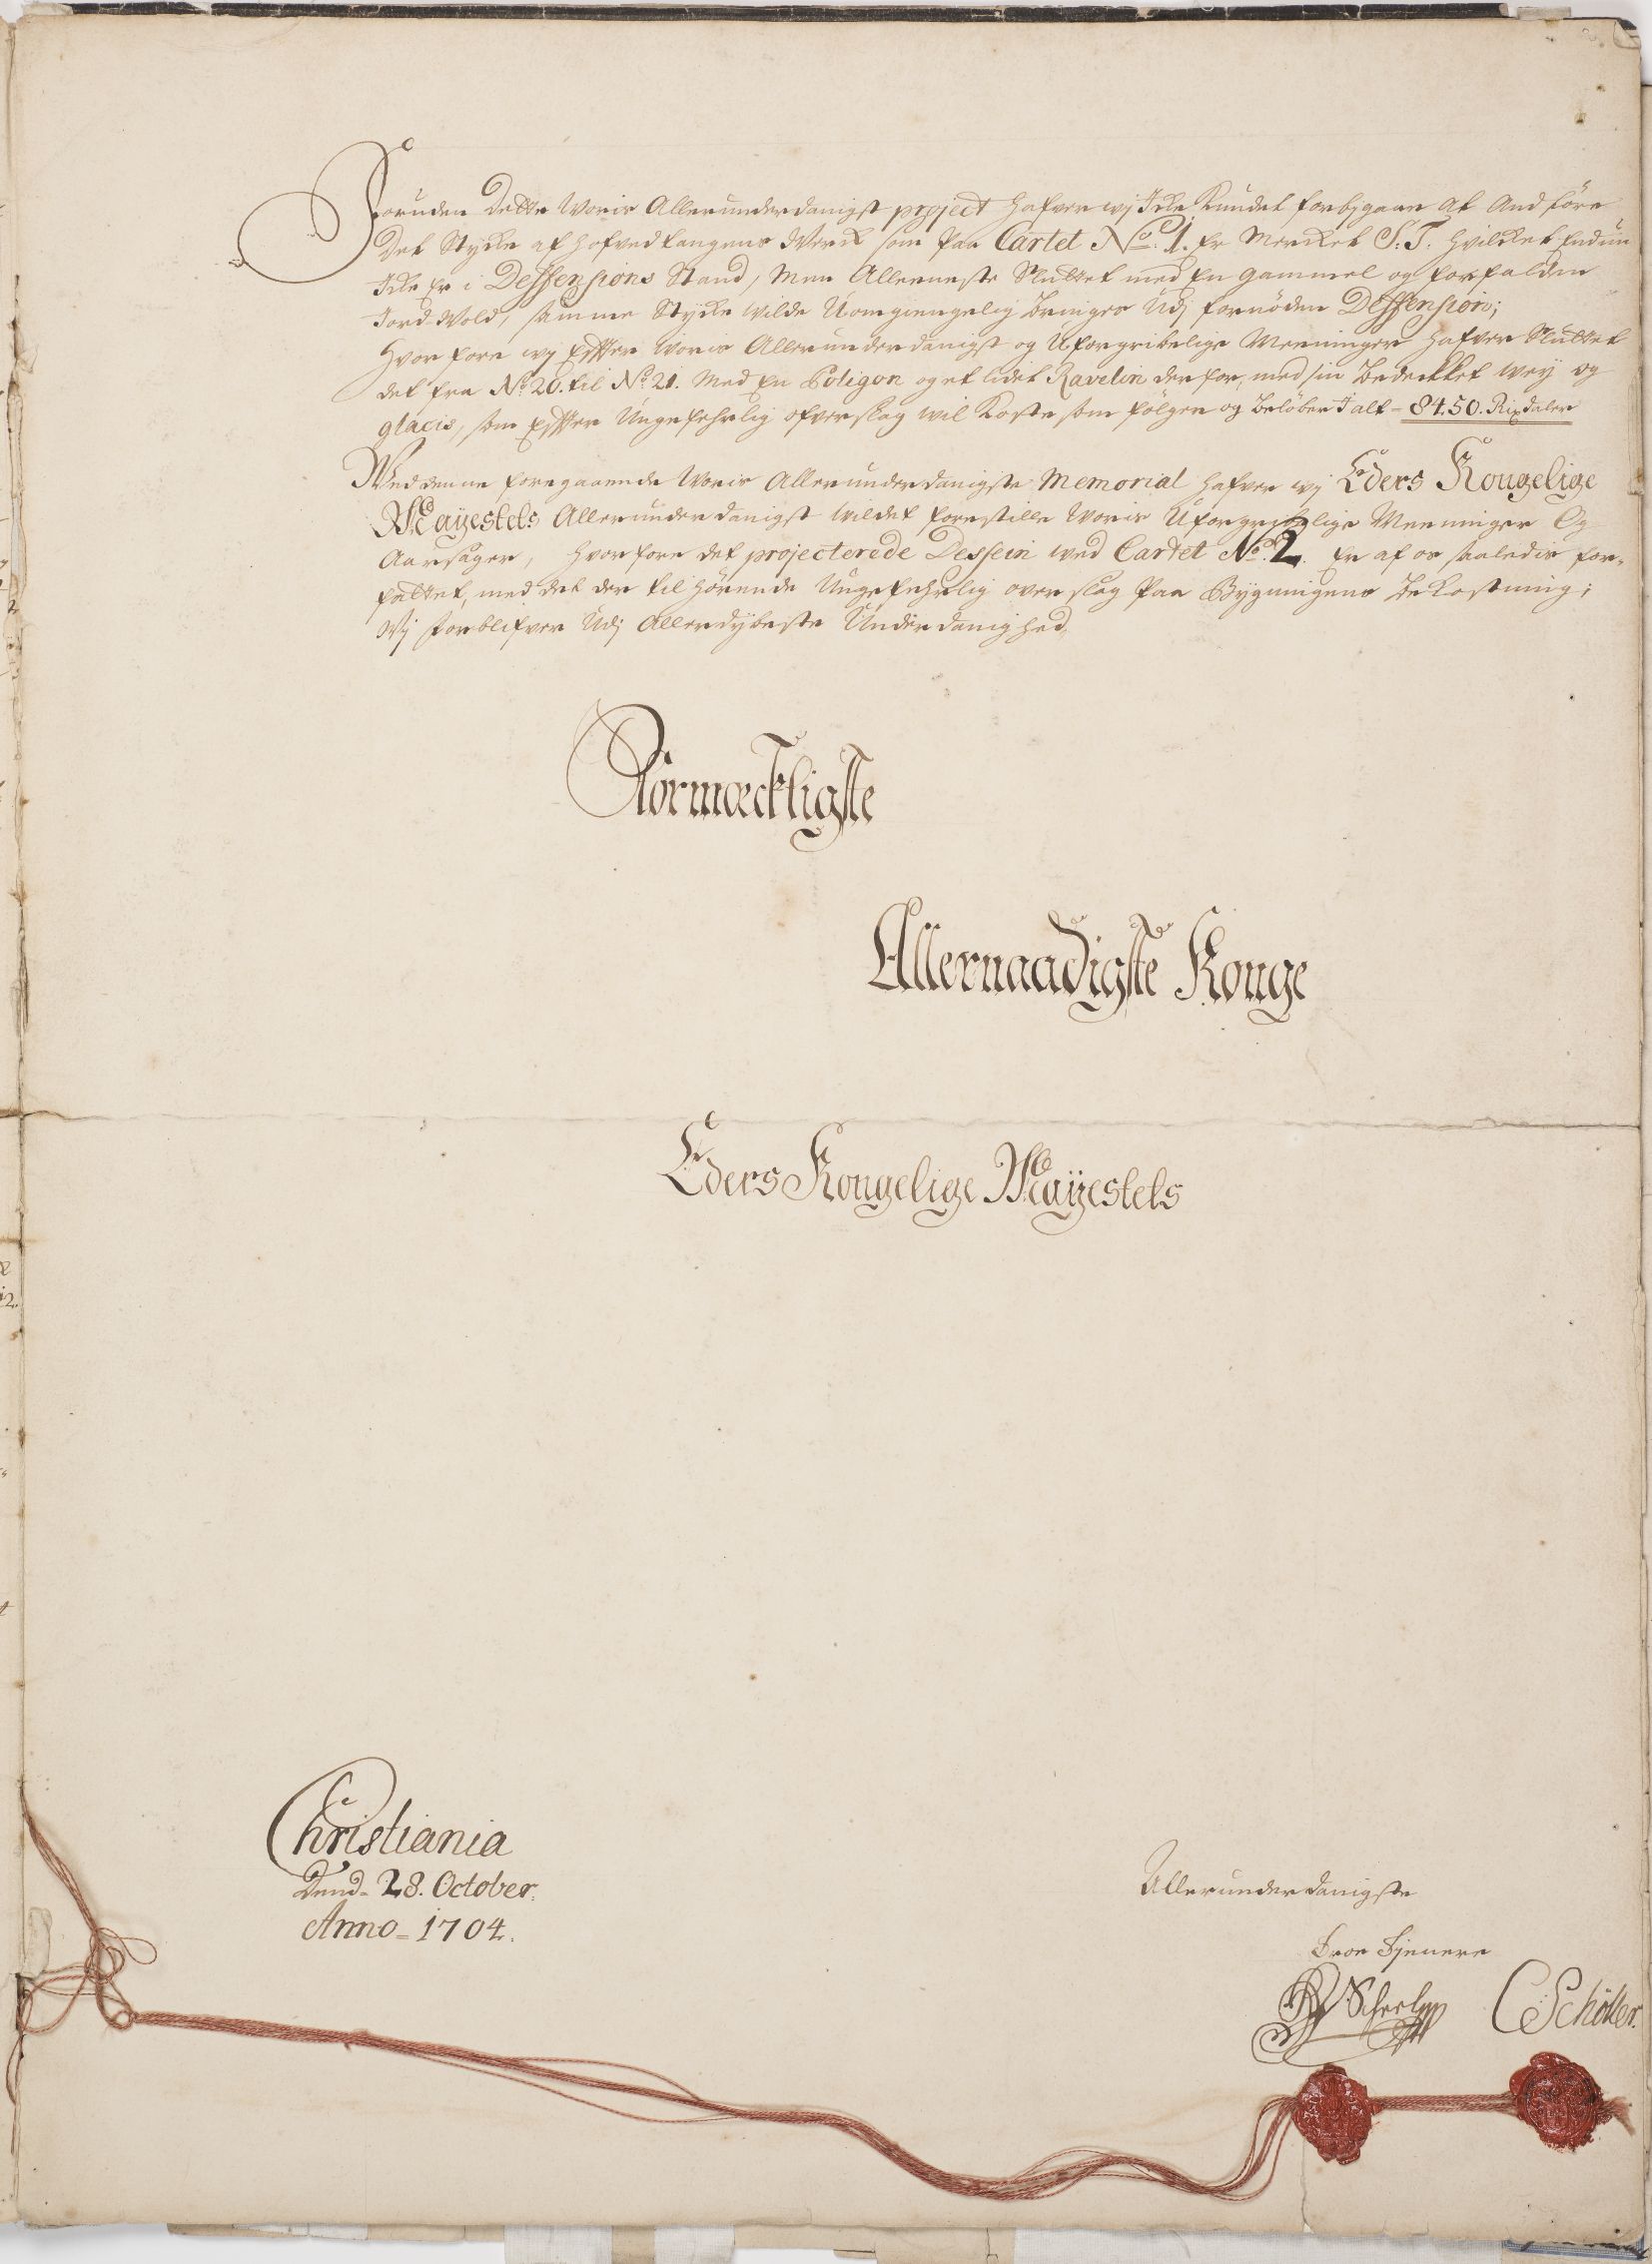 Foruden Dette Woris Allerunderdanigst project hafver wj Icke Kundet forbygaae at Andföre
Det Stycke af Hofvedtangens Werck som Paa Cartet No. 1. Er Mercket S: T: hvilcket Endnu
Icke Er i Deffensions Stand, Men Alleeneste Sluttet med En gammel og forfalden
Jord-Wold, samme Stycke wilde Uomgiengelig Bringes Udj fornöden Deffension;
Hvorfore wj Effter Woris Allerunderdanigst og Uforgribelige Meeninger hafver Sluttet
det fra No: 20. til No: 21. Med En Poligon og et lidet Ravelin derfor, med sin Bedeckket weÿ og
glacis, som Effter Ungefehrlig ofverslag wil Koste som fölger og Belöber I alt - 84.50. Rixdaler
Wed denne foregaaende Woris Allerunderdanigste Memorial hafver wj Eders Kongelige
Maÿestets Allerunderdanigst wildet forestille Woris Uforgribelige Meeninger Og
Aarsager, Hvorfore det projecterede Dessein wed Cartet No. 2. Er af os saaledis for-
fattet, med det der til hörende Ungefehrlig overslag Paa Bygningens Bekostning;
Wj forblifver Udj Allerdÿbeste Underdanighed,
Stormæcktigste
Allernaadigste Konge
Eders Kongelige Maÿestets
Christiania
Dend- 28. October.
Anno- 1704.
Allerunderdanigste
Troe Tjenere
Scheel
C Schöller.